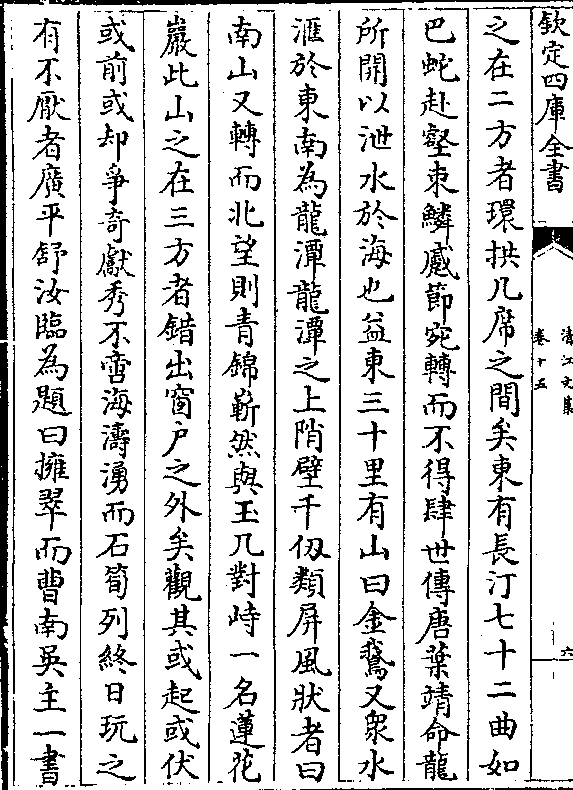 欽定四庫全書
清江文集
卷十五
六
之在二方者環拱几席之間矣東有長汀七十二曲如
巴蛇赴壑束鱗蹙節宛轉而不得肆世傳唐葉靖命龍
所開以泄水於海也益東三十里有山曰金鵞又衆水
滙於東南為龍潭龍潭之上陗壁千仭類屏風狀者曰
南山又轉而北望則青錦嶄然與玉几對峙一名蓮花
巖此山之在三方者錯出窗户之外矣觀其或起或伏
或前或却爭奇獻秀不啻海濤湧而石筍列終日玩之
有不厭者廣平舒汝臨為題曰擁翠而曹南吳主一書